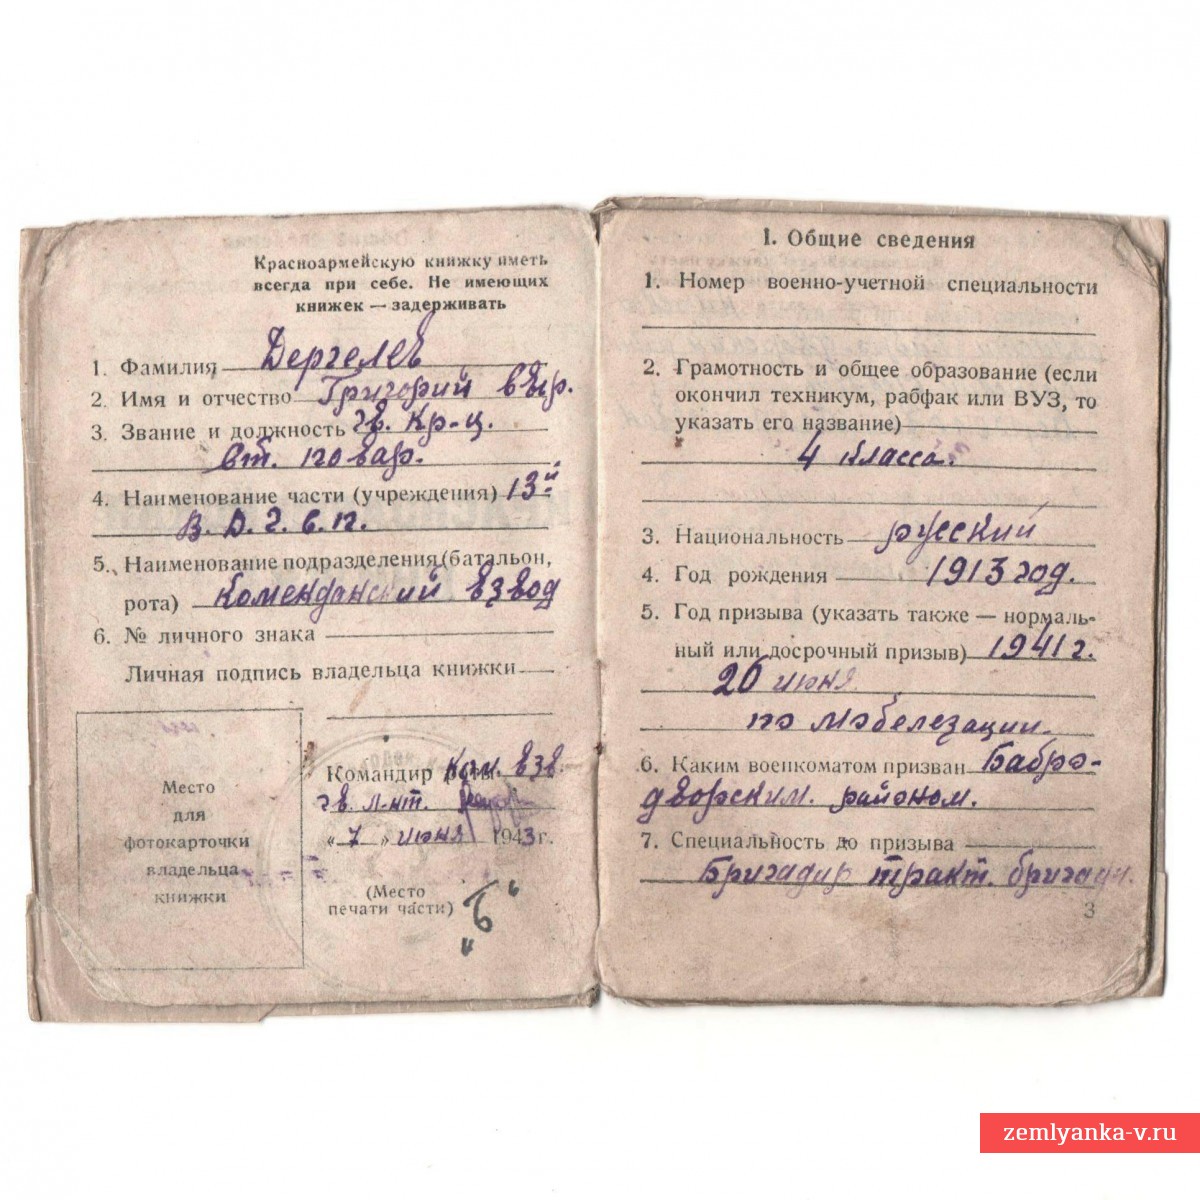 Красноармейскую книжку иметь
всегда при себе. Не имеющих
книжек — задерживать
1. Фамилия Дергелев
2. Имя и отчество Григорий
3. Звание и должность гв. кр-ц.
ст. повар.
4. Наименование части (учреждения) 13й
В. Д. г. б. п.
5. Наименование подразделения (батальон,
рота) Коменданский взвод
6. № личного знака
Личная подпись владельца книжки
Место
для
фотокарточки
владельца
книжки
Командир роты Ком. взв.
гв. л-нт.
« 7 » июня 1943 г.
(Место
печати части)
"Б"
I. Общие сведения
1. Номер военно-учетной специальности
2. Грамотность и общее образование (если
окончил техникум, рабфак или ВУЗ, то
указать его название)
4 класса.
3. Национальность русский
4. Год рождения 1913 год.
5. Год призыва (указать также — нормаль-
ный или досрочный призыв) 1941 г.
20 июня
по мобелезации.
6. Каким военкоматом призван Бабро-
дворским. районом.
7. Специальность до призыва
Бригадир тракт. бригади.
3
zemlyanka-v.ru